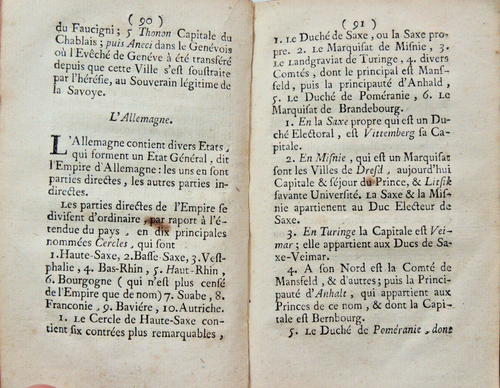 ( 90 )
du Faucigni; 5 Thonon Capitale du
Chablais; puis Aneci dans le Genévois
où l'Evêché de Genéve à été transféré
depuis que cette Ville s'eſt ſouſtraire
par l'héréſie, au Souverain légitime de
la Savoye.
L'Allemagne.
L'Allemagne contient divers Etats,
qui forment un Etat Général, dit
l'Empire d'Allemagne: les uns en ſont
parties directes, les autres parties in-
directes.
Les parties directes de l'Empire ſe
diviſent d'ordinaire, par raport à l'é-
tendue du pays, en dix principales
nommées Cercles, qui ſont
1. Haute-Saxe, 2. Baſſe Saxe, 3. Veſt-
phalie, 4. Bas-Rhin, 5. Haut-Rhin,
6. Bourgogne ( qui n'eſt plus cenſé
de l'Empire que de nom) 7. Suabe, 8.
Franconie, 9. Baviére, 10. Autriche.
1. Le Cercle de Haute-Saxe con-
tient ſix contrées plus remarquables,
( 91 )
1. Le Duché de Saxe, ou la Saxe pro-
pre. 2. Le Marquiſat de Miſnie, 3.
Le Landgraviat de Turinge, 4. divers
Comtés, dont le principal eſt Manſ-
feld, puis la principauté d'Anhald,
5. Le Duché de Poméranie, 6. Le
Marquiſat de Brandebourg.
1. En la Saxe propre qui eſt un Du-
ché Electoral, eſt Vittemberg ſa Ca-
pitale.
2. En Miſnie, qui eſt un Marquiſat
ſont les Villes de Dreſd, aujourd'hui
Capitale & ſéjour du Prince, & Litſik
ſavante Univerſité. La Saxe & la Miſ-
nie apartienent au Duc Electeur de
Saxe.
3. En Turinge la Capitale eſt Vei-
mar; elle appartient aux Ducs de Sa-
xe-Veimar.
4. A ſon Nord eſt la Comté de
Mansfeld, & d'autres; puis la Princi-
pauté d'Anhalt, qui appartient aux
Princes de ce nom, & dont la Capi-
tale eſt Bernbourg.
5. Le Duché de Poméranie, dont